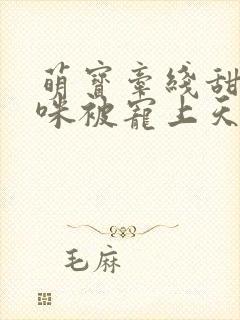 萌寳牽綫甜
咪被寵上天
毛麻